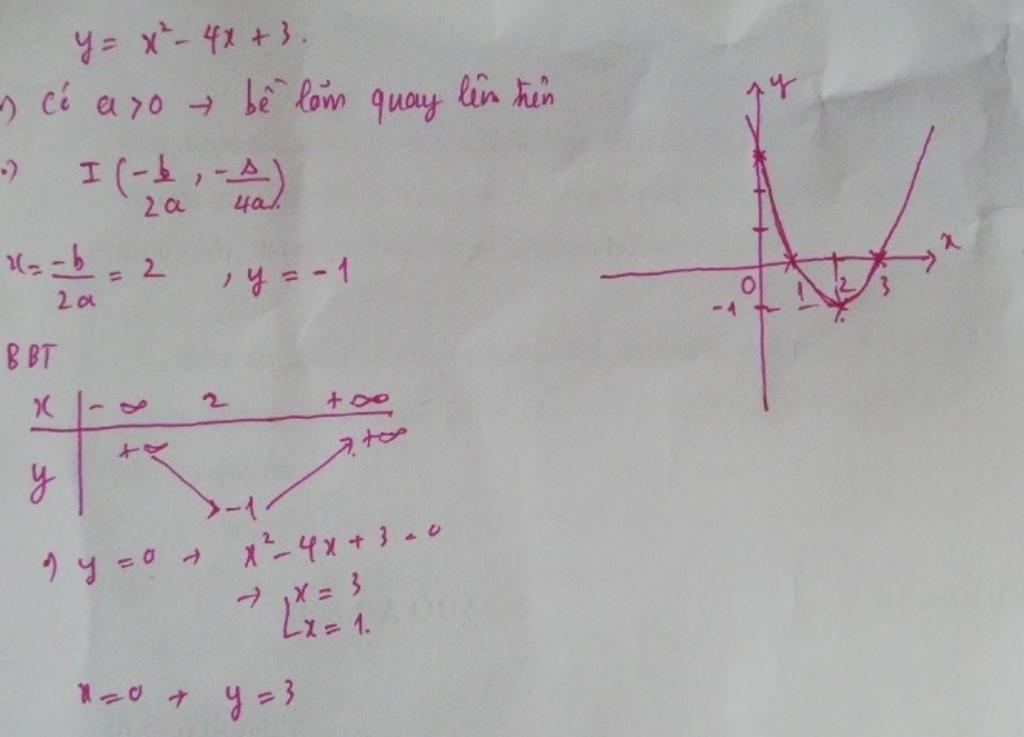 y = x² - 4x + 3.
Có a > 0 → bề lõm quay lên trên
I (-b/2a, -Δ/4a)
x = -b/2a = 2 , y = -1
BBT
x | -∞ 2 +∞
y | +∞ -1 +∞
y = 0 → x² - 4x + 3 = 0
→ [x = 3
[x = 1.
x = 0 → y = 3
y
x
0 1 2 3
-1